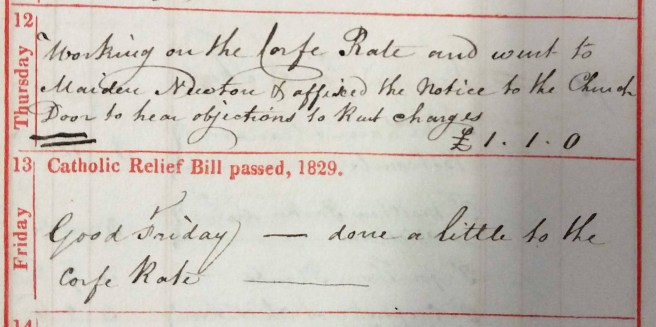 12
Thursday
Working on the Corfe Rate and went to
Maiden Newton & affixed the Notice to the Church
Door to hear objections to Rent charges
£1.1.0
13 Catholic Relief Bill passed, 1829.
Friday
Good Friday — done a little to the
Corfe Rate —
14